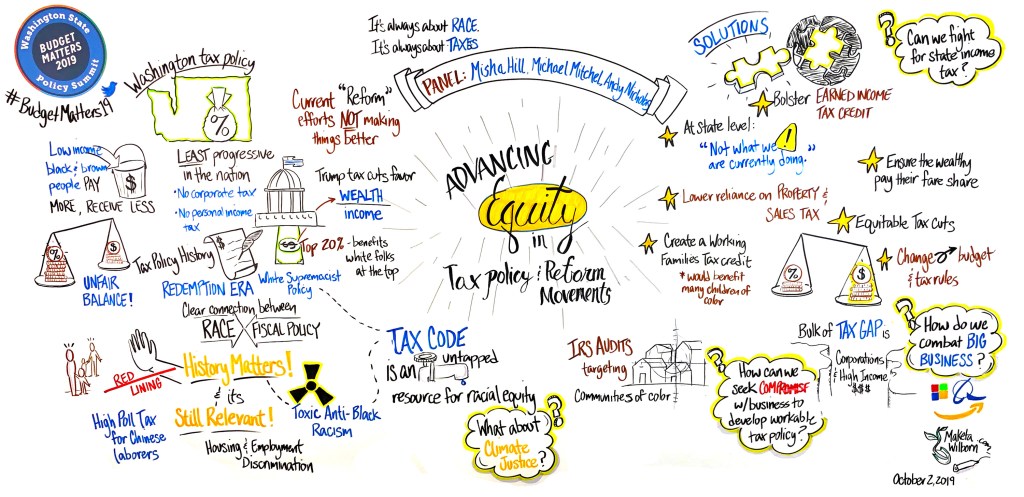 Washington State
BUDGET
MATTERS
2019
Policy Summit
#BudgetMatters19
Washington tax policy
%
LEAST progressive
in the nation
•No corporate tax
•No personal income
tax
Low income
black & brown
people PAY
MORE, RECEIVE LESS
$
%
$
UNFAIR
BALANCE!
Current "Reform"
efforts NOT making
things better
Trump tax cuts favor
WEALTH
income
$
Top 20% - benefits
white folks
at the top
Tax Policy History
REDEMPTION ERA
White Supremacist
Policy
Clear connection between
RACE FISCAL POLICY
RED
LINING
History Matters!
& it's
Still Relevant!
High Poll Tax
for Chinese
laborers
Housing & Employment
Discrimination
Toxic Anti-Black
Racism
It's always about RACE.
It's always about TAXES
PANEL: Misha Hill, Michael Mitchel, Andy Nicholas
ADVANCING
Equity
in
Tax policy & Reform
Movements
TAX CODE
is an untapped
resource for racial equity
What about
Climate
Justice?
SOLUTIONS
Bolster EARNED INCOME
TAX CREDIT
At State level:
"Not what we
are currently doing."
!
Lower reliance on PROPERTY &
SALES TAX
Create a Working
Families Tax credit
*would benefit
many children of
color
Can we fight
for state income
tax?
Ensure the wealthy
pay their fare share
Equitable Tax Cuts
Change budget
& tax rules
%
$
IRS AUDITS
targeting
Communities of color
How can we
seek COMPROMISE
w/business to
develop workable
tax policy?
Bulk of TAX GAP is
Corporations
& High Income
$$$
How do we
combat BIG
BUSINESS?
a
Maketa
Wilborn .com
October 2, 2019